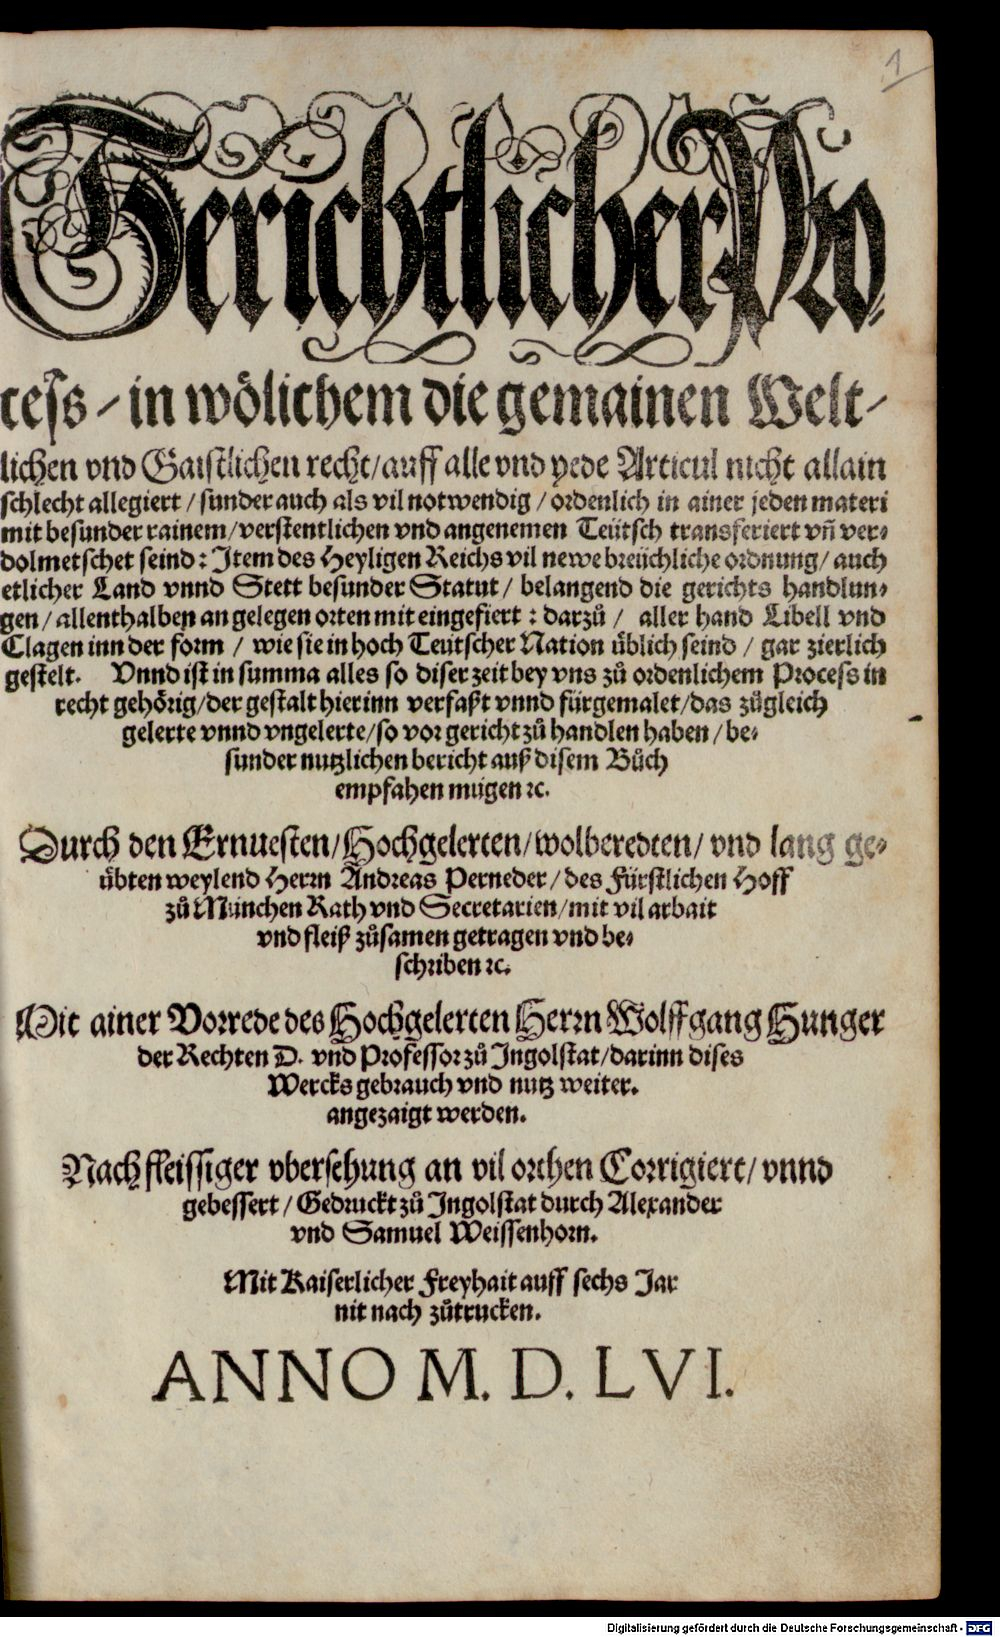 1
Gerichtlicher Pro-
cess / in wölichem die gemainen Welt-
lichen vnd Gaistlichen recht / auff alle vnd yede Articul nicht allain
schlecht allegiert / sunder auch als vil notwendig / ordenlich in ainer jeden materi
mit besunder rainem / verstentlichen vnd angenemen Teütsch transferiert vñ ver-
dolmetschet seind : Item des Heyligen Reichs vil newe breüchliche ordnung / auch
etlicher Land vnnd Stett besunder Statut / belangend die gerichts handlun-
gen / allenthalben an gelegen orten mit eingefiert : darzů / aller hand Libell vnd
Clagen inn der form / wie sie in hoch Teutscher Nation üblich seind / gar zierlich
gestelt. Vnnd ist in summa alles so diser zeit bey vns zů ordenlichem Process in
recht gehörig / der gestalt hierinn verfaßt vnnd fürgemalet / das zůgleich
gelerte vnnd vngelerte / so vor gericht zů handlen haben / be-
sunder nutzlichen bericht auß disem Bůch
empfahen mügen ꝛc.
Durch den Ernuesten / Hochgelerten / wolberedten / vnd lang ge-
übten weylend Herrn Andreas Perneder / des Fürstlichen Hoff
zů München Rath vnd Secretarien / mit vil arbait
vnd fleiß zůsamen getragen vnd be-
schriben ꝛc.
Mit ainer Vorrede des Hochgelerten Herrn Wolffgang Hunger
der Rechten D. vnd Professor zů Ingolstat / darinn dises
Wercks gebrauch vnd nutz weiter.
angezaigt werden.
Nach fleissiger vbersehung an vil orthen Corrigiert / vnnd
gebessert / Gedruckt zů Ingolstat durch Alexander
vnd Samuel Weissenhorn.
Mit Kaiserlicher Freyhait auff sechs Jar
nit nach zůtrucken.
ANNO M. D. LVI.
Digitalisierung gefördert durch die Deutsche Forschungsgemeinschaft - DFG